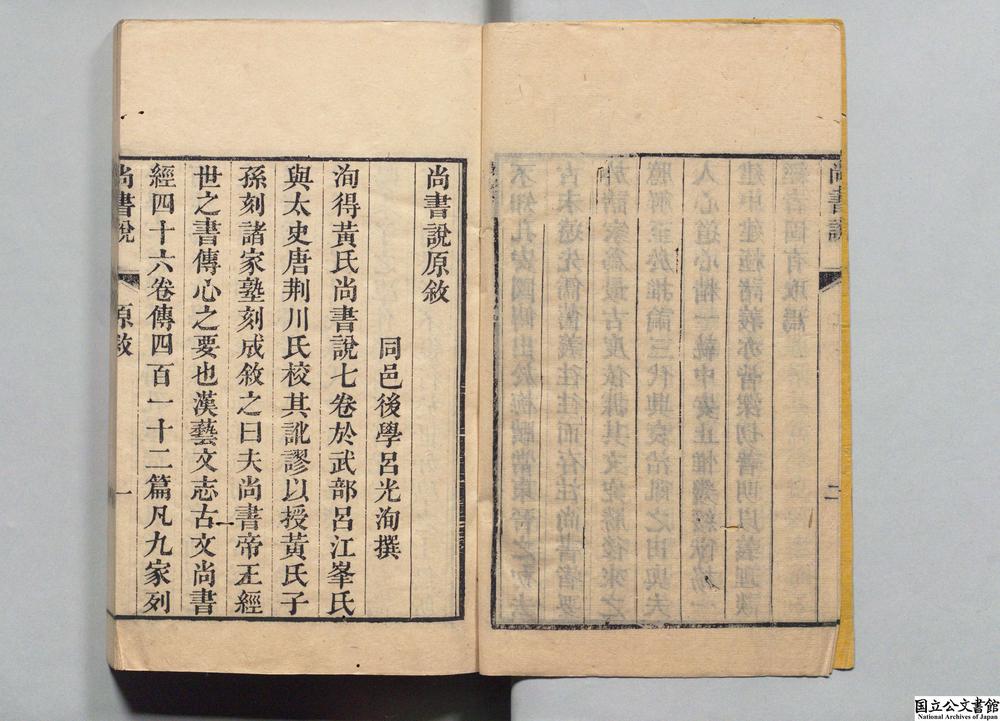 尚書說
二
尚書說原敘
同邑後學呂光洵撰
洵得黃氏尚書說七卷於武部呂江峯氏
與太史唐荆川氏校其訛謬以授黃氏子
孫刻諸家塾刻成敘之曰夫尚書帝王經
世之書傳心之要也漢藝文志古文尚書
經四十六卷傳四百一十二篇凡九家列
尚書說
原敘
一
国立公文書館
National Archives of Japan